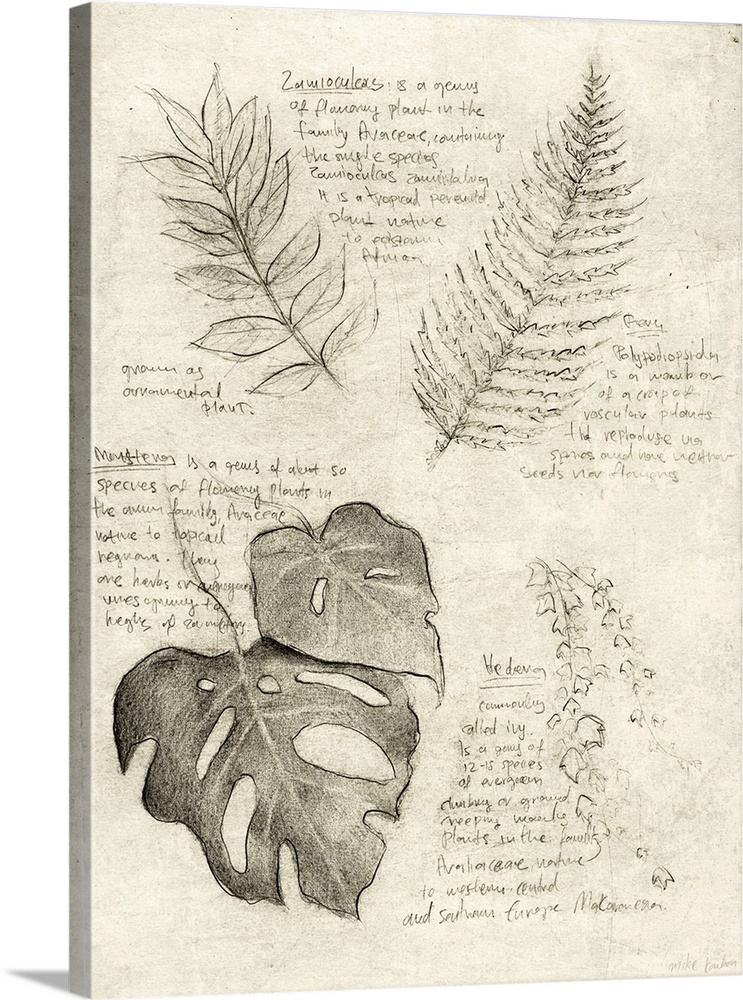 Zamioculcas: is a genus
of flowering plant in the
family Araceae, containing
the single species
Zamioculcas zamiifolia
It is a tropical perennial
plant native
to eastern
grown as
ornamental
plant.
Fern
Polypodiopsida
is a member
of a group of
vascular plants
that reproduce via
spores and have neither
seeds nor flowers
Monstera is a genus of about 50
species of flowering plants in
the arum family, Araceae
native to tropical
regions. They
are herbs or evergreen
vines growing to
heights of 20 meters
Hedera
commonly
called ivy.
Is a genus of
12-15 species
of evergreen
climbing or ground
creeping woody
plants in the family
Araliaceae native
to western, central
and southern Europe Makaronesia.
Mike